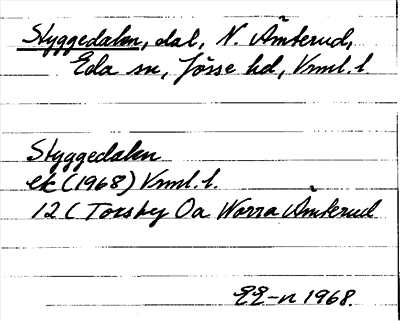 Styggedalen, dal, N. Åmterud,
Eda sn, Jösse hd, Vrml. l.
Styggedalen
ek (1968) Vrml. l.
12 C Torsby Oa Norra Åmterud
EE-n 1968.